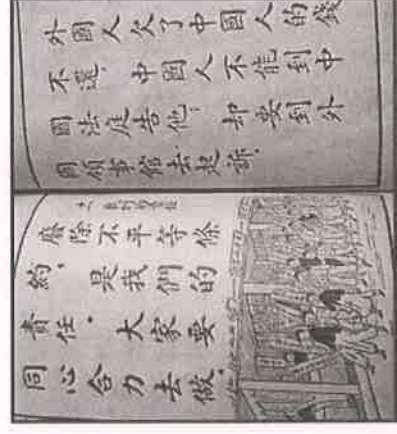 外國人欠了中國人的錢
不還，中國人不能到中
國法庭告他，却要到外
國領事館去起訴。
廢除不平等條
約，是我們的
責任。大家要
同心合力去做。